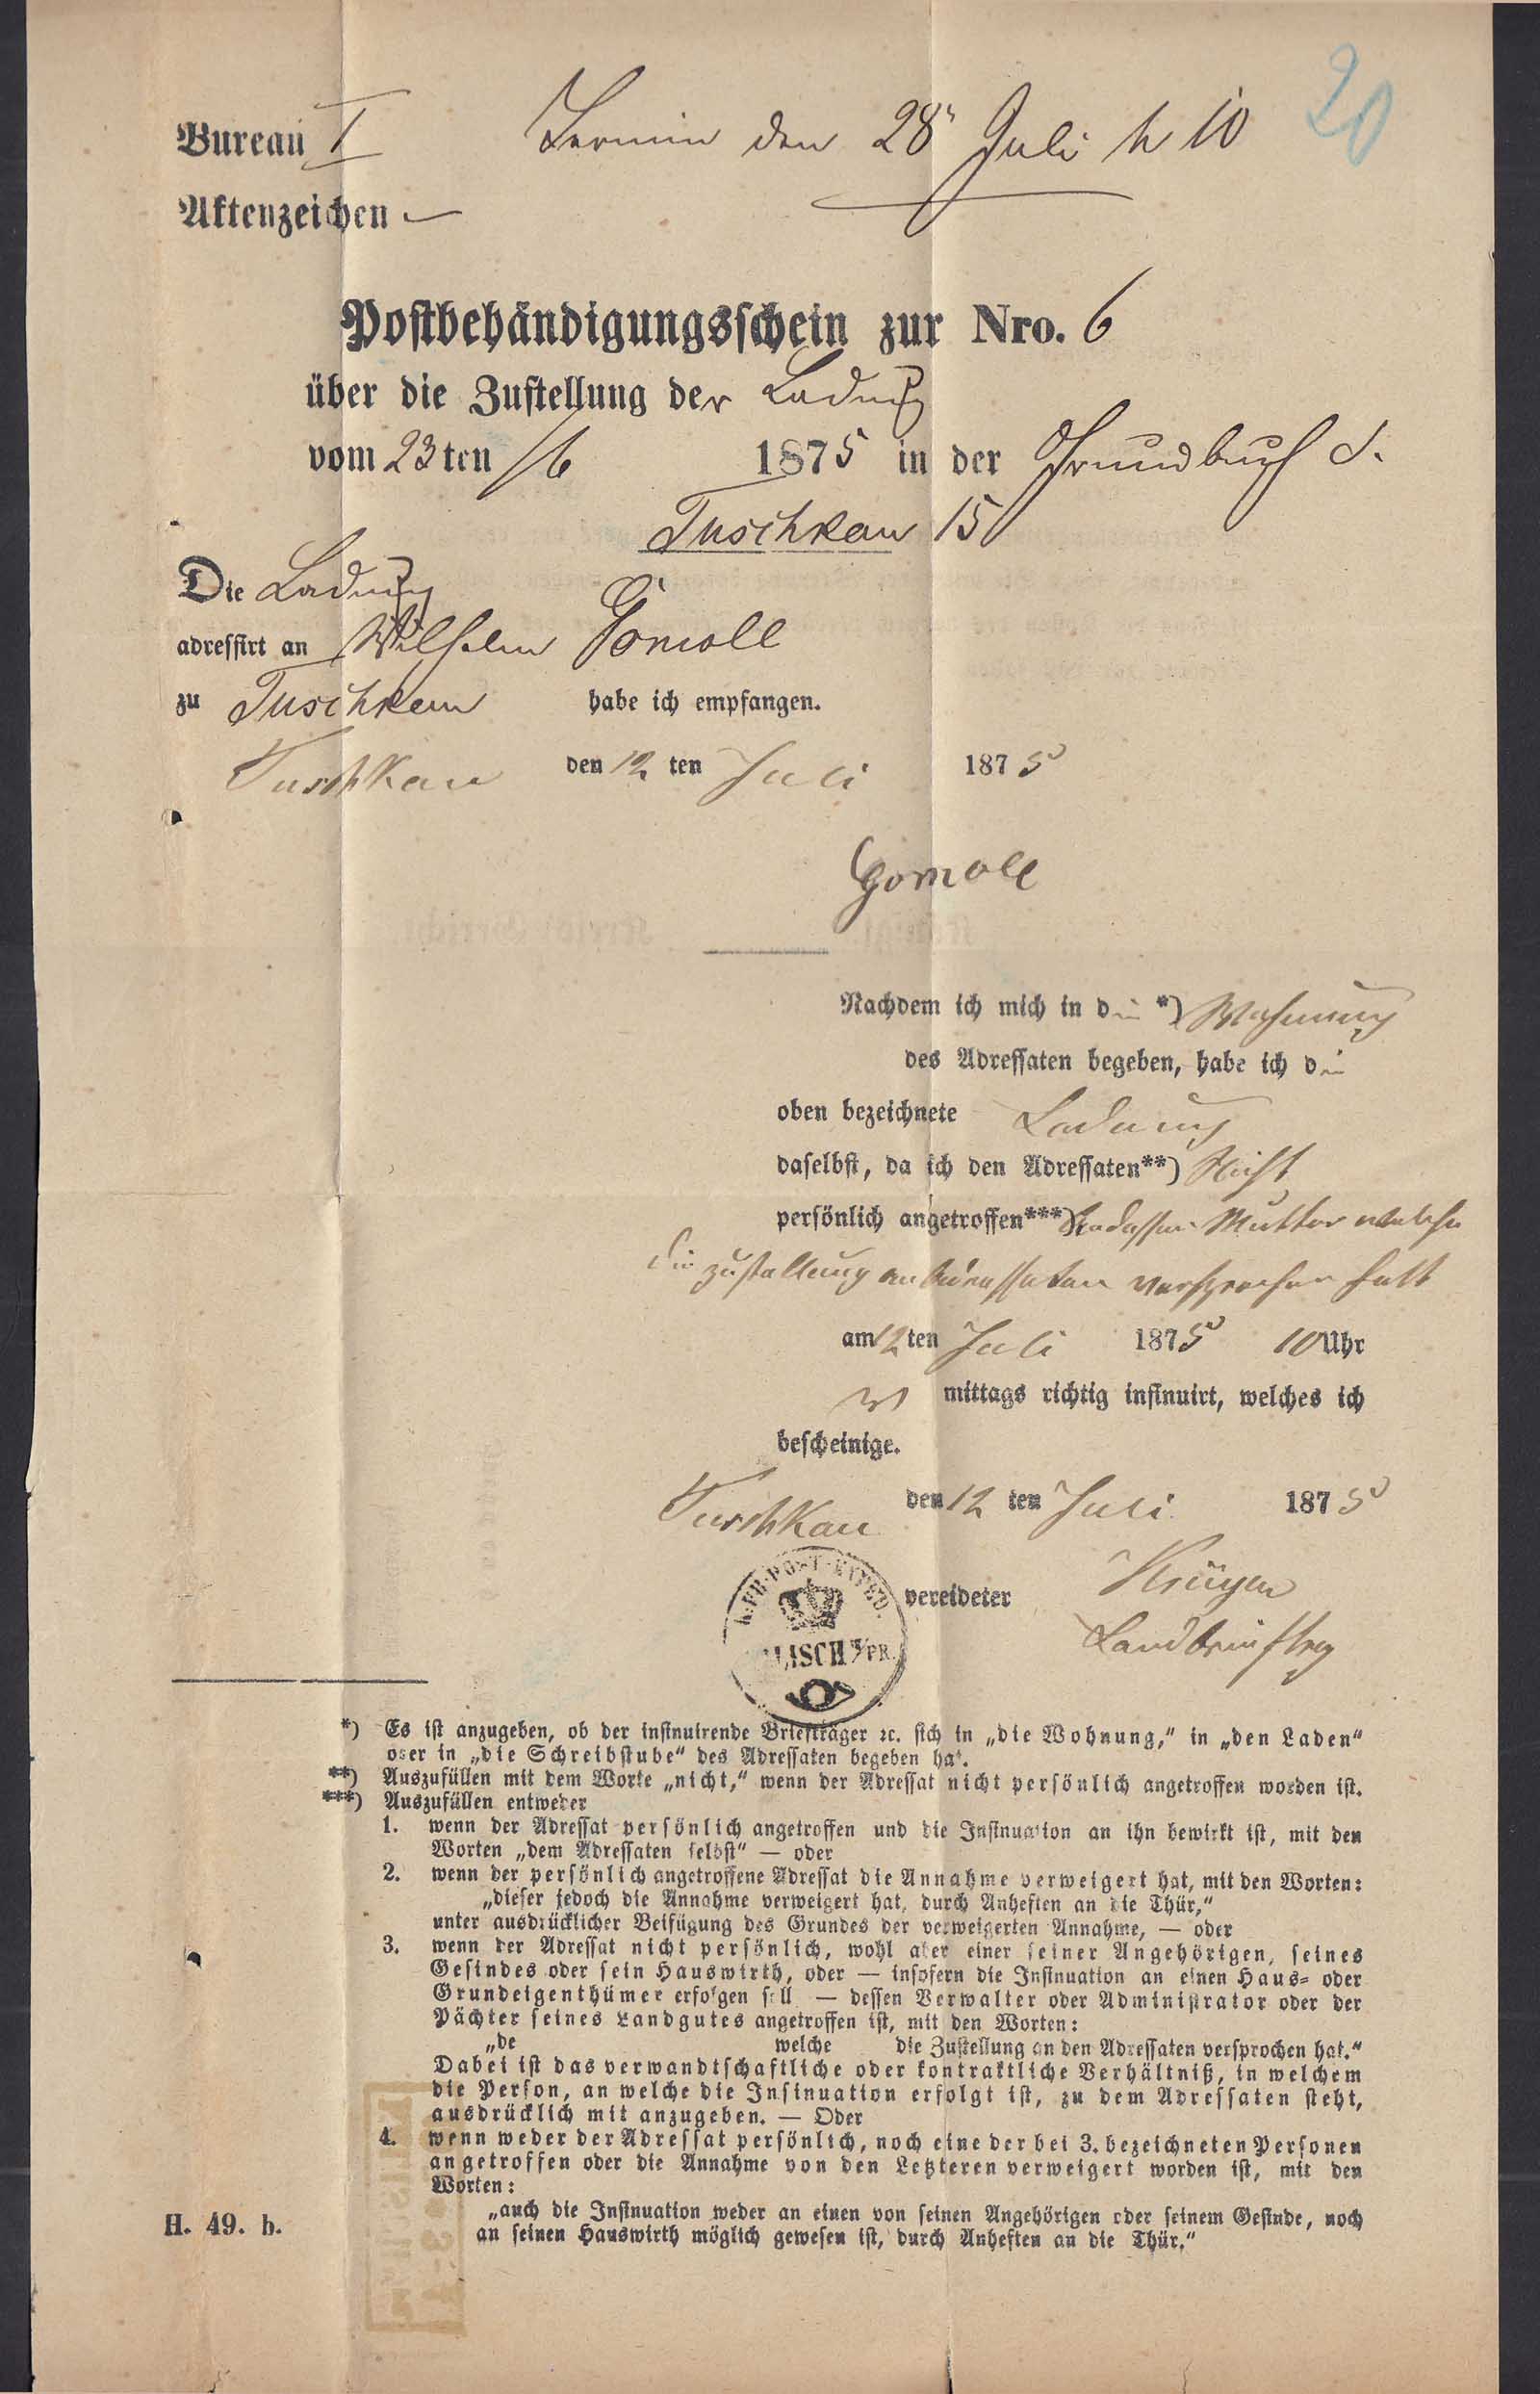 20
Bureau I Termin den 28 Juli h 10
Aktenzeichen —
Postbehändigungsschein zur Nro. 6
über die Zustellung der Ladung
vom 23ten /6 1875 in der Grundbuch S.
Tuschkau 15
Die Ladung
adressirt an Wilhelm Gomoll
zu Tuschkau habe ich empfangen.
Tuschkau den 12 ten Juli 1875
Gomoll
Nachdem ich mich in die *) Wohnung
des Adressaten begeben, habe ich die
oben bezeichnete Ladung
daselbst, da ich den Adressaten**) Nicht
persönlich angetroffen***) dessen Mutter welche
die zustellung an Adressaten versprochen hatt
am 12ten Juli 1875 10 Uhr
V mittags richtig insinuirt, welches ich
bescheinige.
Tuschkau den 12 ten Juli 1875
vereideter Krüger
Landbriefträg
K. PR. POST-EXPED.
W/PR.
*) Es ist anzugeben, ob der insinuirende Briefträger ꝛc. sich in „die Wohnung,“ in „den Laden“
oder in „die Schreibstube“ des Adressaten begeben hat.
**) Auszufüllen mit dem Worte „nicht,“ wenn der Adressat nicht persönlich angetroffen worden ist.
***) Auszufüllen entweder
1. wenn der Adressat persönlich angetroffen und die Insinuation an ihn bewirkt ist, mit den
Worten „dem Adressaten selbst“ — oder
2. wenn der persönlich angetroffene Adressat die Annahme verweigert hat, mit den Worten:
„dieser jedoch die Annahme verweigert hat, durch Anheften an die Thür,“
unter ausdrücklicher Beifügung des Grundes der verweigerten Annahme, — oder
3. wenn der Adressat nicht persönlich, wohl aber einer seiner Angehörigen, seines
Gesindes oder sein Hauswirth, oder — insofern die Insinuation an einen Haus- oder
Grundeigenthümer erfolgen soll — dessen Verwalter oder Administrator oder der
Pächter seines Landgutes angetroffen ist, mit den Worten:
„de welche die Zustellung an den Adressaten versprochen hat.“
Dabei ist das verwandtschaftliche oder kontraktliche Verhältniß, in welchem
die Person, an welche die Insinuation erfolgt ist, zu dem Adressaten steht,
ausdrücklich mit anzugeben. — Oder
4. wenn weder der Adressat persönlich, noch eine der bei 3. bezeichneten Personen
angetroffen oder die Annahme von den Letzteren verweigert worden ist, mit den
Worten:
„auch die Insinuation weder an einen von seinen Angehörigen oder seinem Gesinde, noch
an seinen Hauswirth möglich gewesen ist, durch Anheften an die Thür.“
H. 49. b.